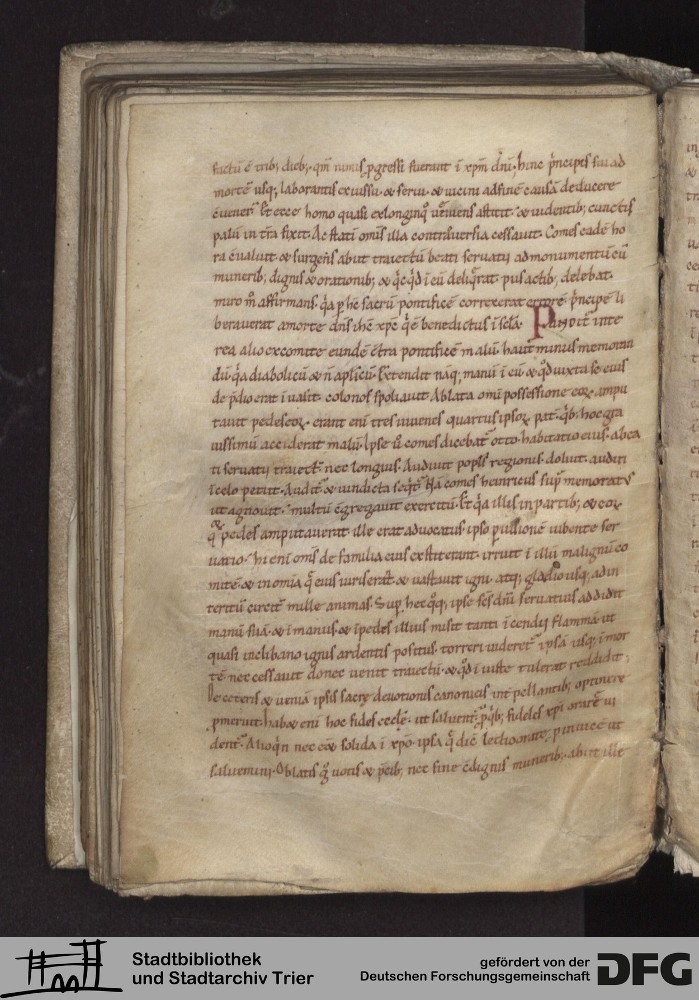 factū ē trib; dieb; qm̄ nimis ꝑgressi fuerant ī xp̄m dn̄i. hinc p̄ncipes sui ad
mortē usq; laborantis ex iussu & serui & uicini ad finē causā deducere
ecce homo quasi ex longinq° astitit & uidentib; cunctis
palū in tr̄a fixit. Ac statī om̄is illa contr̄uersia cessauit. Comes eadē ho
ra ēualuit & surgens abiit traiectū beati seruatii ad monumentū cū
munerib; dignis & orationib; & qͥcqͥd ī eū deliq̄rat piis actib; delebat.
miro m̊ affirmans. q̄a ꝑ he sacrū pontificē correxerat errorē p̄ncipē li
berauerat a morte dn̄s ihē xp̄c q̄ ē benedictus ī sc̄la. inte
rea alio ex comite eundē c̄tra pontificē malū. haut minus memoran
dū. q̄a diabolicū & n̄ ap̄licū. Extendit naq; manū ī eū & qͦd iuxta se eius
de p̄dio erat īuasit. colonos spoliauit. Ablata om̄i possessione eoꝝ ampu
tauit pedes eoꝝ. erant eni tres iuuenes quartus ipsoꝝ pat̄. qͥb; hoc gra
uissimū acciderat malū. Ipse u̅ comes dicebat᷑ otto. habitatio eius abea
ti seruatii traiect̄ nec longius. Audiuit popls̄ regionis. doluit. audiri
ī celo petiit. Audit᷑ & uindicta seqͥt᷑. Nā comes heinricus sup̄ memoratus
ut agnouit. multū c̄gregauit exercitū. Et q̄a illis in partib; & eoꝝ
&
q̄ pedes amputauerat ille erat aduocatus. ipso iubente ser
uatio. hi eni om̄s de familia eius exstiterant. irruit ī illū malignū co
mitē & in om̄ia q̄ eius iuris erāt & uastauit igni atq; gladio usq; ad in
teritū circit᷑ mille animas. Sup̄ hec qͦq; ipse sc̄s dn̄i seruatius addidit
manū suā. & ī manus & ī pedes illius misit tanti īcendii flammā ut
quasi in clibano ignis ardentis positus torreri uideret᷑ ipsā usq; ī mor
tē. nec cessauit donec uenit traiectū & qͦd īiuste tulerat reddidit.
De ceteris & ueniā ipsis sacre deuotionis canonicis int̄pellantib; optinere
ꝓmeruit. habet eni hoc fides eccle. ut saluent᷑ p̄qͥb; fideles xp̄i orare ui
dent᷑. Alioqͥn nec eēt solida ī xp̄o ipsa q̄ dic̄ ut
saluemini. Oblatis g̊ uotis & p̄cib; nec sine c̄dignis munerib; abiit ille
Stadtbibliothek
und Stadtarchiv Trier
gefördert von der
Deutschen Forschungsgemeinschaft
DFG